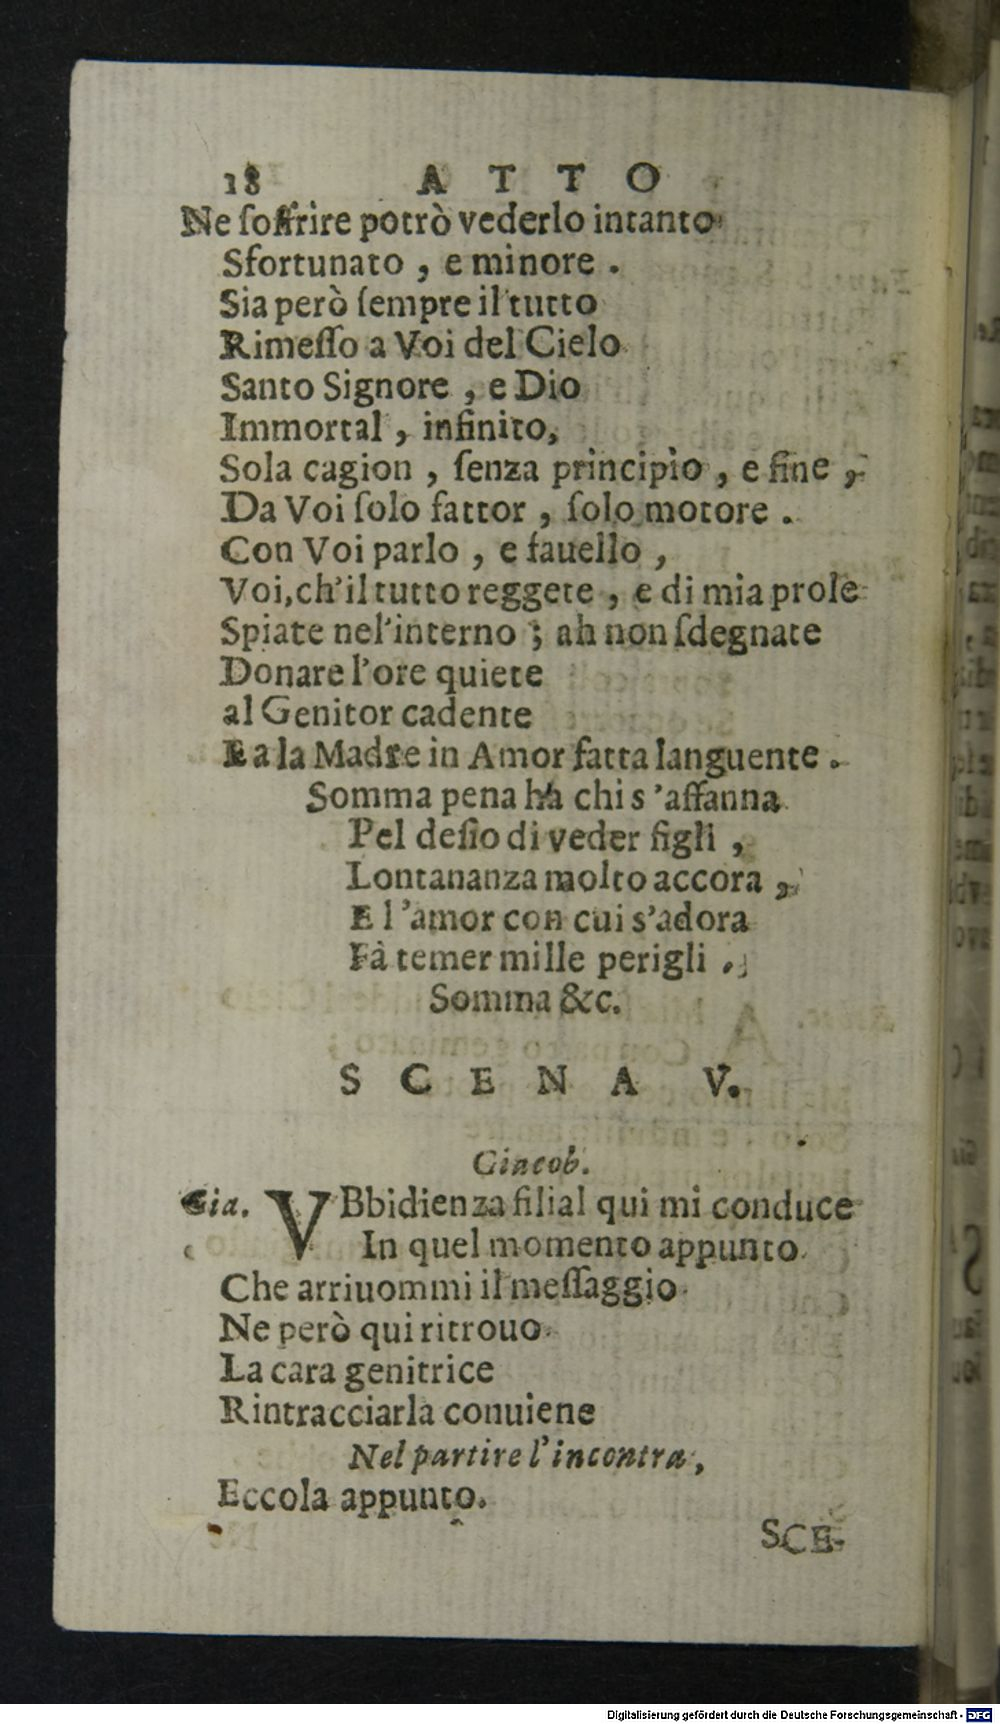 18 ATTO
Ne ſoffrire potrò vederlo intanto
Sfortunato , e minore .
Sia però ſempre il tutto
Rimeſſo a Voi del Cielo
Santo Signore , e Dio
Immortal , infinito,
Sola cagion , ſenza principio , e fine ,
Da Voi ſolo fattor , ſolo motore .
Con Voi parlo , e fauello ,
Voi,ch'il tutto reggete , e di mia prole
Spiate nel'interno ; ah non ſdegnate
Donare l'ore quiete
al Genitor cadente
E a la Madre in Amor fatta languente .
Somma pena hà chi s'affanna
Pel deſio di veder figli ,
Lontananza molto accora ,
E l'amor con cui s'adora
Fà temer mille perigli .
Somma &c.
SCENA V.
Giacob.
Gia. VBbidienza filial qui mi conduce
In quel momento appunto
Che arriuommi il meſſaggio
Ne però qui ritrouo
La cara genitrice
Rintracciarla conuiene
Nel partire l'incontra,
Eccola appunto.
SCE-
Digitalisierung gefördert durch die Deutsche Forschungsgemeinschaft - DFG